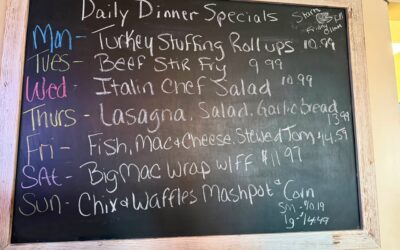 Daily Dinner Specials
Mon - Turkey Stuffing Roll ups 10.99
Tues - Beef Stir Fry 9.99
Wed - Italin Chef Salad 10.99
Thurs - Lasagna, Salad, Garlic bread 13.99
Fri - Fish, Mac & Cheese, Stewed Tom $14.59
Sat - Big Mac Wrap w/FF $11.97
Sun - Chix & Waffles Mashpot & Corn
Sm - 10.19
lg - 14.49